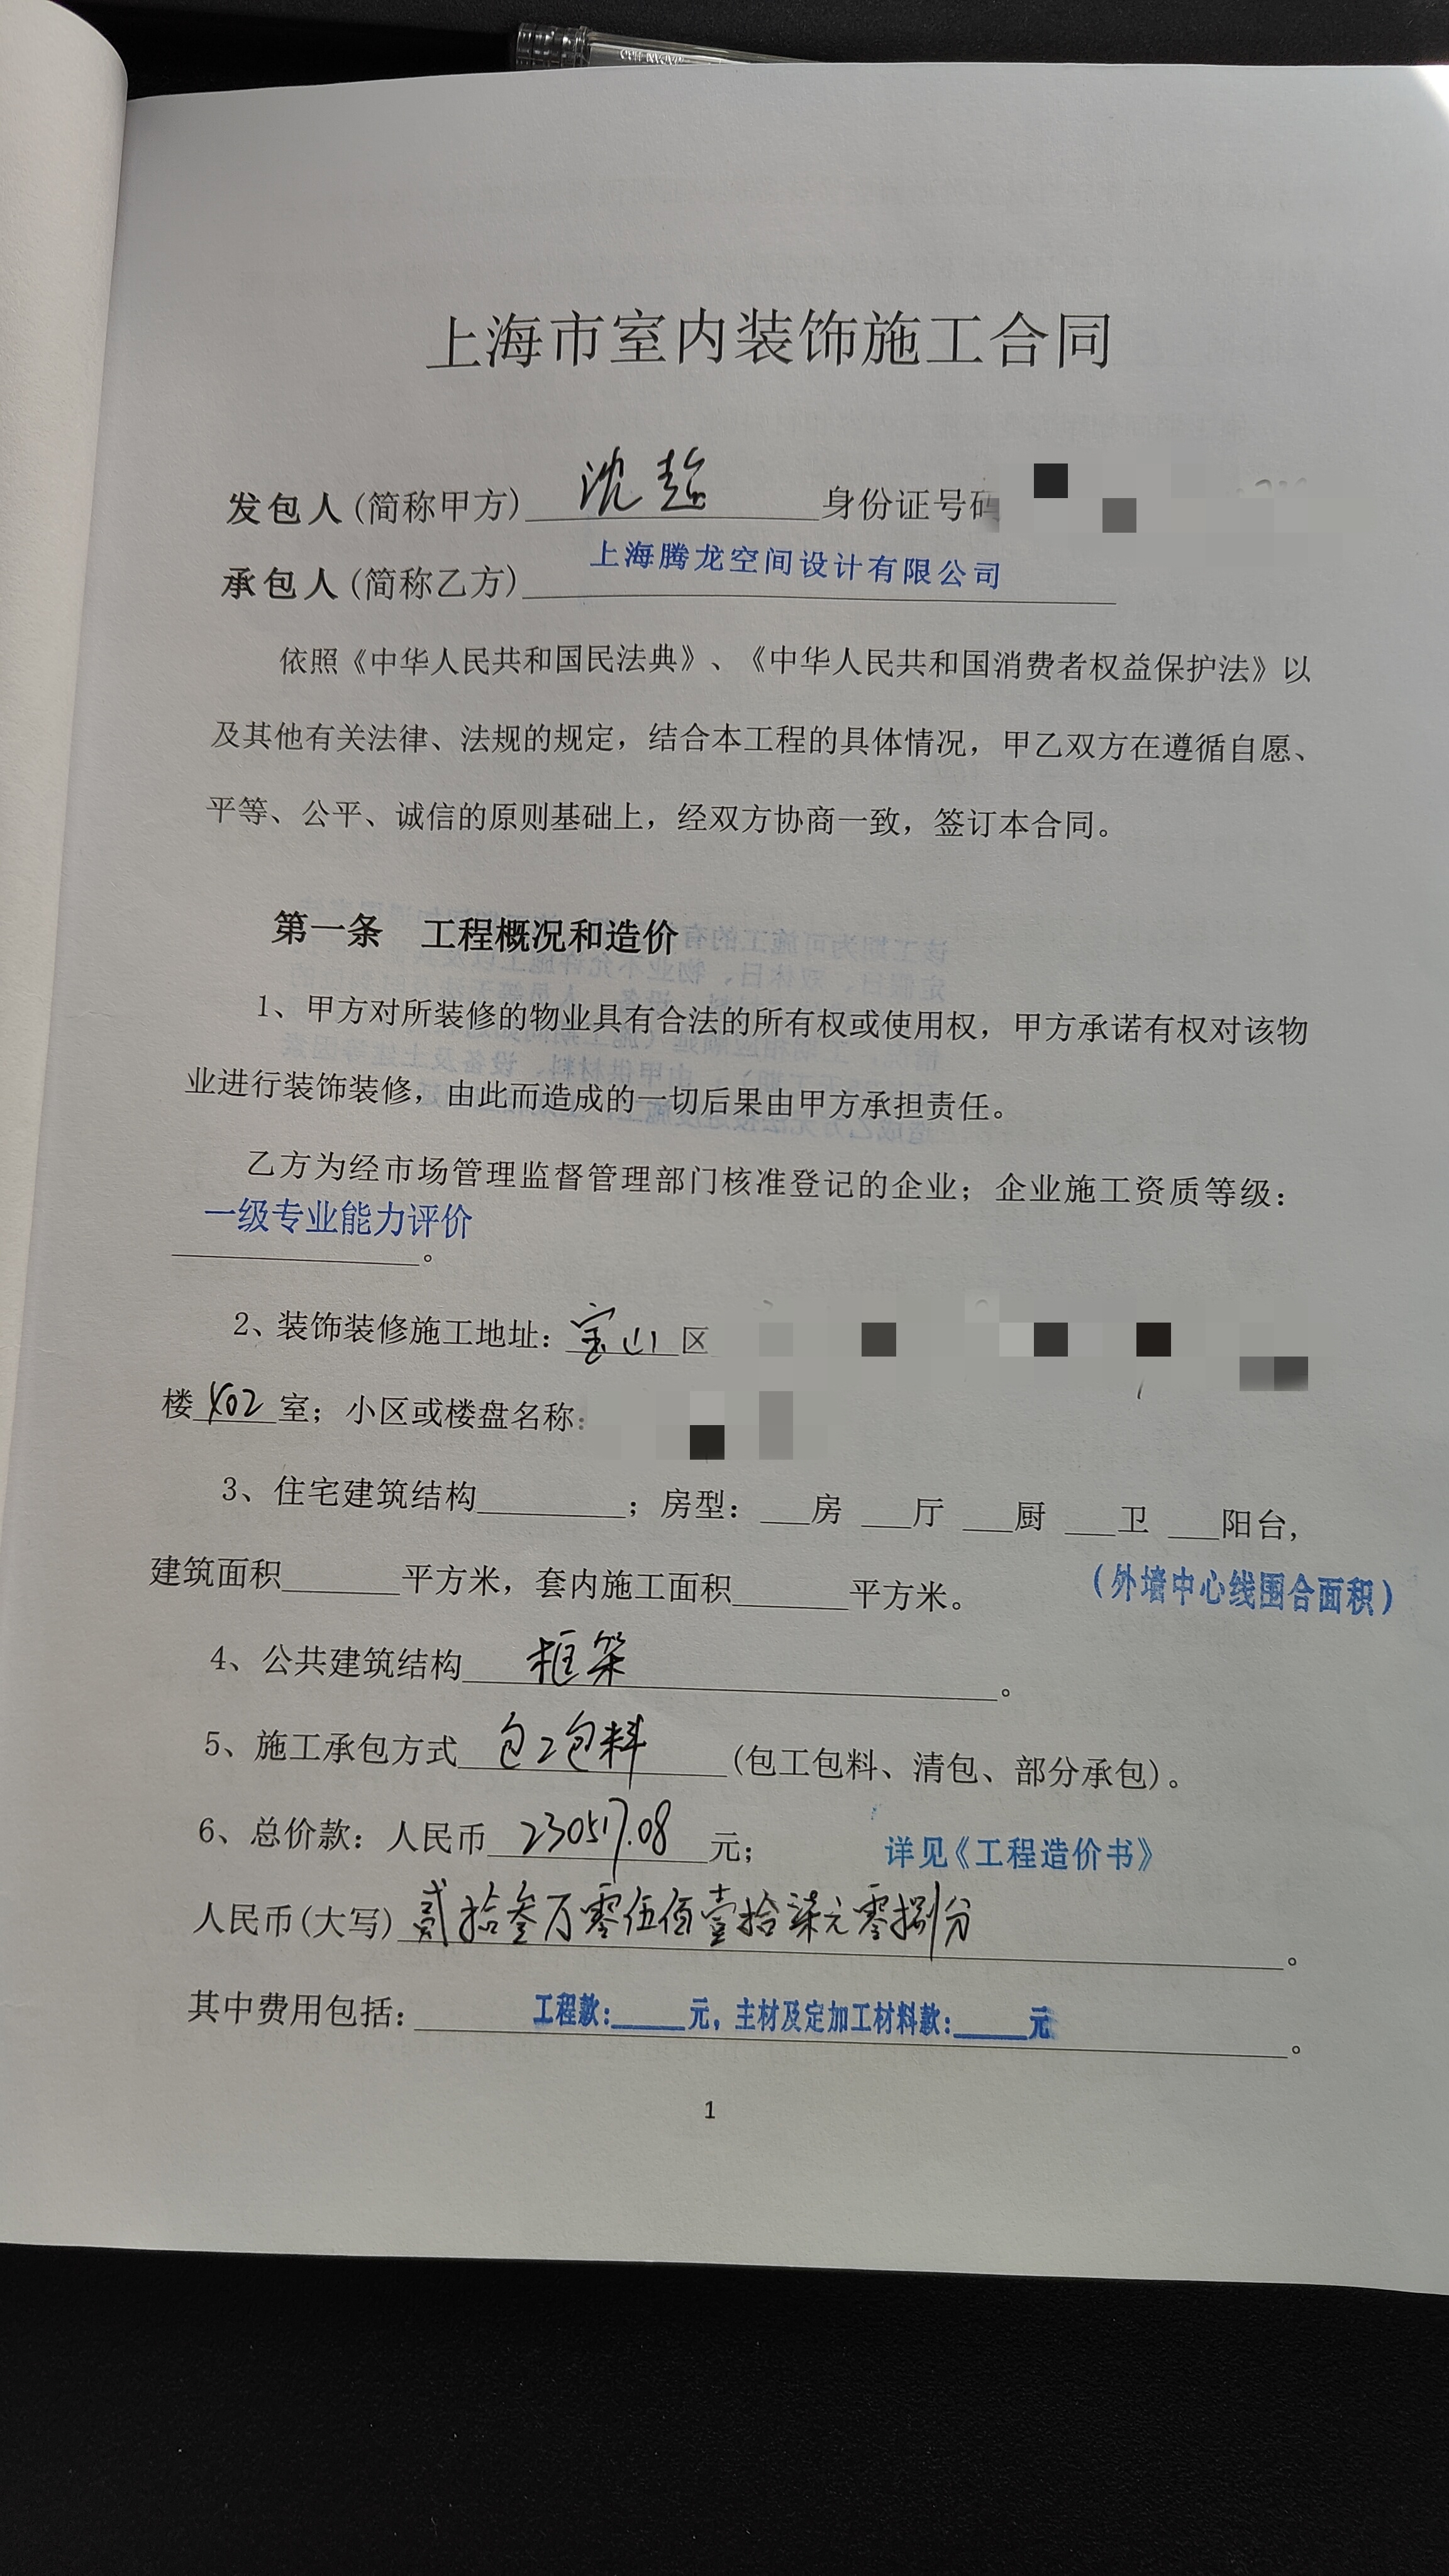 上海市室内装饰施工合同
发包人(简称甲方) 沈超 身份证号码
承包人(简称乙方) 上海腾龙空间设计有限公司
依照《中华人民共和国民法典》、《中华人民共和国消费者权益保护法》以
及其他有关法律、法规的规定，结合本工程的具体情况，甲乙双方在遵循自愿、
平等、公平、诚信的原则基础上，经双方协商一致，签订本合同。
第一条 工程概况和造价
1、甲方对所装修的物业具有合法的所有权或使用权，甲方承诺有权对该物
业进行装饰装修，由此而造成的一切后果由甲方承担责任。
乙方为经市场管理监督管理部门核准登记的企业；企业施工资质等级：
一级专业能力评价。
2、装饰装修施工地址：宝山区
楼 402 室；小区或楼盘名称：
3、住宅建筑结构______；房型：__房 __厅 __厨 __卫 __阳台，
建筑面积______平方米，套内施工面积______平方米。 (外墙中心线围合面积)
4、公共建筑结构 框架。
5、施工承包方式 包工包料 (包工包料、清包、部分承包)。
6、总价款：人民币 230517.08 元； 详见《工程造价书》
人民币(大写) 贰拾叁万零伍佰壹拾柒元零捌分。
其中费用包括： 工程款:____元，主材及定加工材料款:____元。
1